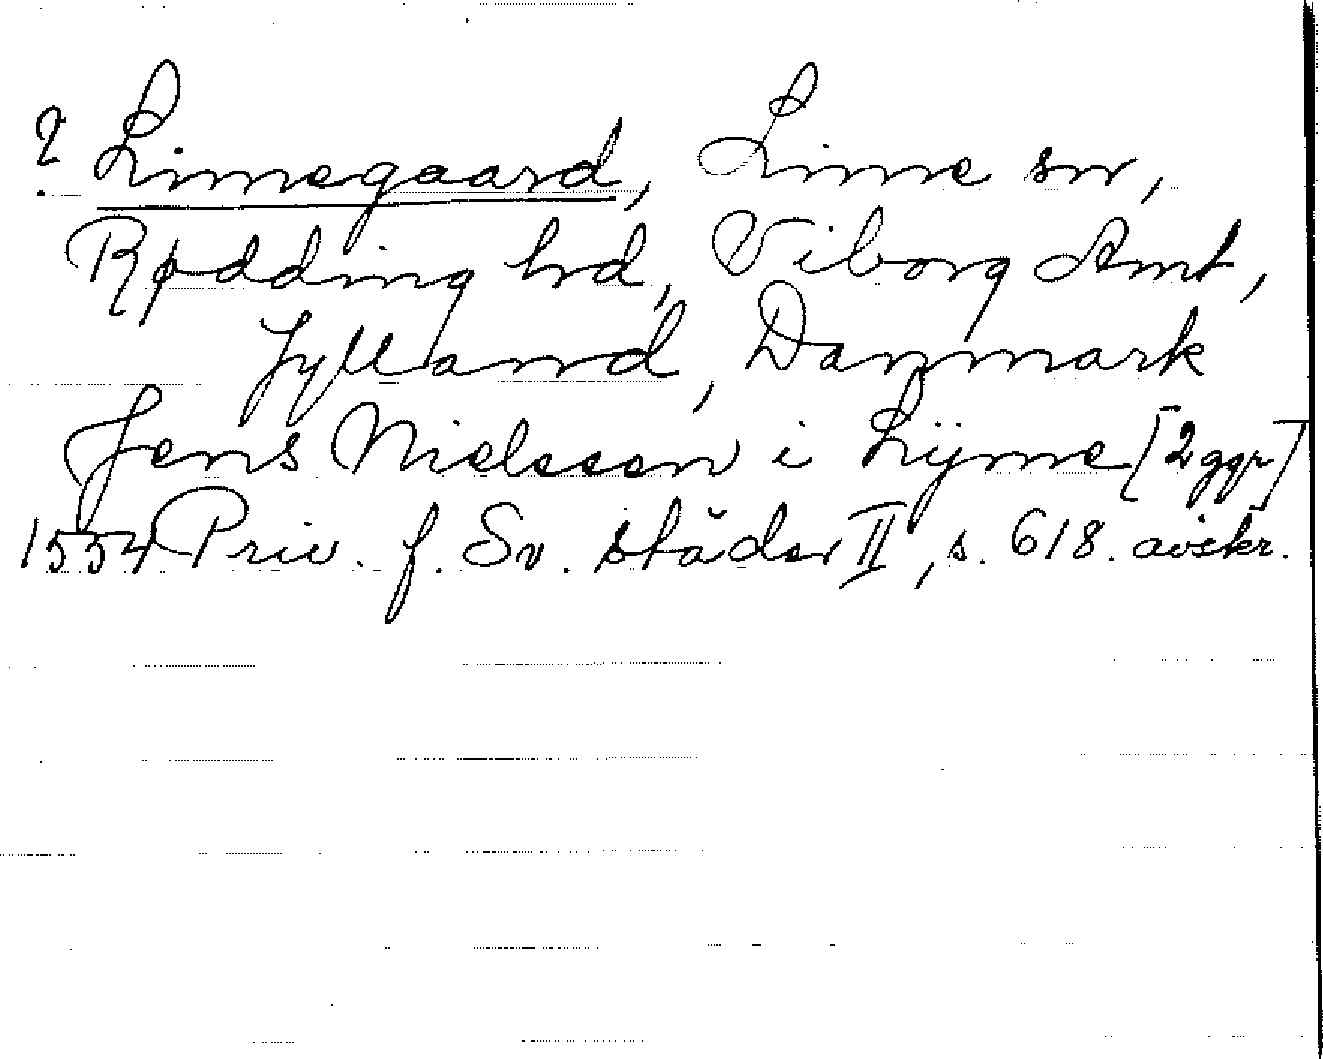 ? Linnegaard, Linne sn,
Rødding hrd, Viborg Amt,
Jylland, Danmark
Jens Nielssen i Lijnne [2 ggr]
1554 Priv. f. Sv. städer II, s. 618. avskr.